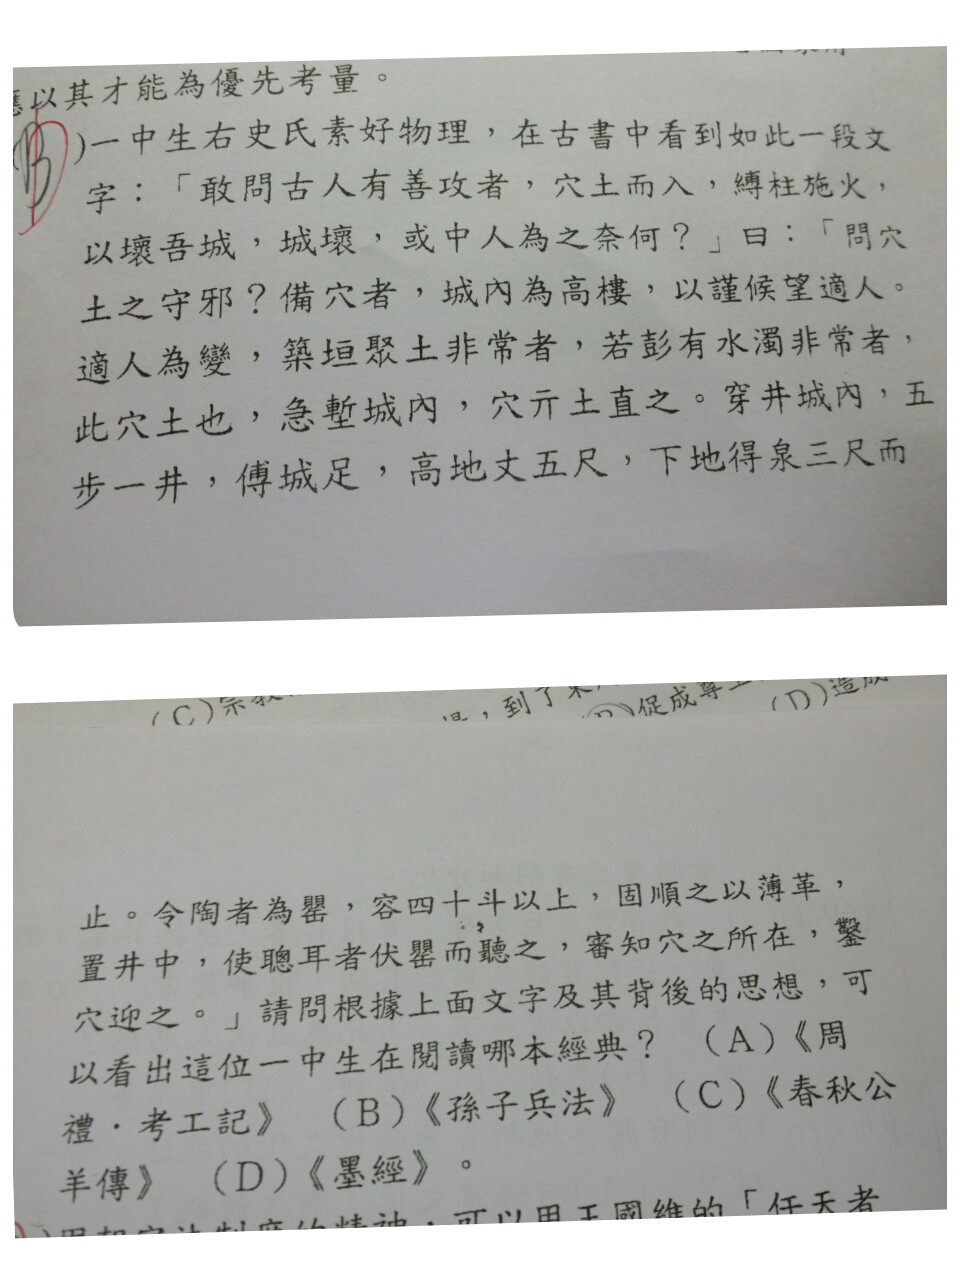 應以其才能為優先考量。
(B)一中生右史氏素好物理，在古書中看到如此一段文
字：「敢問古人有善攻者，穴土而入，縛柱施火，
以壞吾城，城壞，或中人為之奈何？」曰：「問穴
土之守邪？備穴者，城內為高樓，以謹候望適人。
適人為變，築垣聚土非常者，若彭有水濁非常者，
此穴土也，急塹城內，穴亓土直之。穿井城內，五
步一井，傅城足，高地丈五尺，下地得泉三尺而
(C)宗教
，到了
(D)促成尊王
(D)造成
止。令陶者為罌，容四十斗以上，固順之以薄革，
置井中，使聰耳者伏罌而聽之，審知穴之所在，鑿
穴迎之。」請問根據上面文字及其背後的思想，可
以看出這位一中生在閱讀哪本經典？ (A)《周
禮．考工記》 (B)《孫子兵法》 (C)《春秋公
羊傳》 (D)《墨經》。
的精神，可以用王國維的「任天者